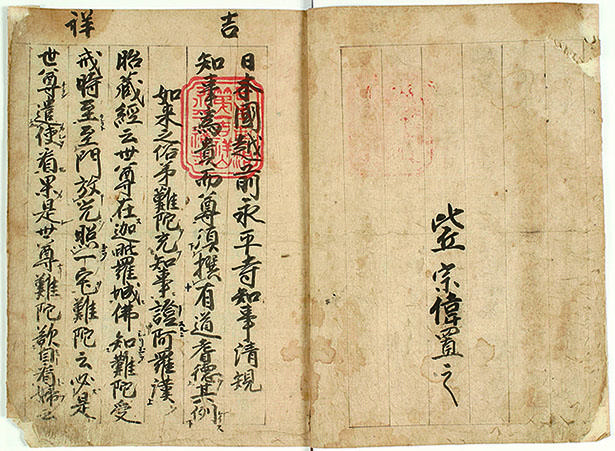 比丘宗偉置之
吉祥
日本國越前永平寺知事清規
知事為貴而尊須撰有道耆德其例
如来之俗弟難陀充知事證阿羅漢
胎藏經云世尊在迦毗羅城佛知難陀受
戒時至至門放光照一宅難陀云必是
世尊遣使看果是世尊難陀欲自看婦云